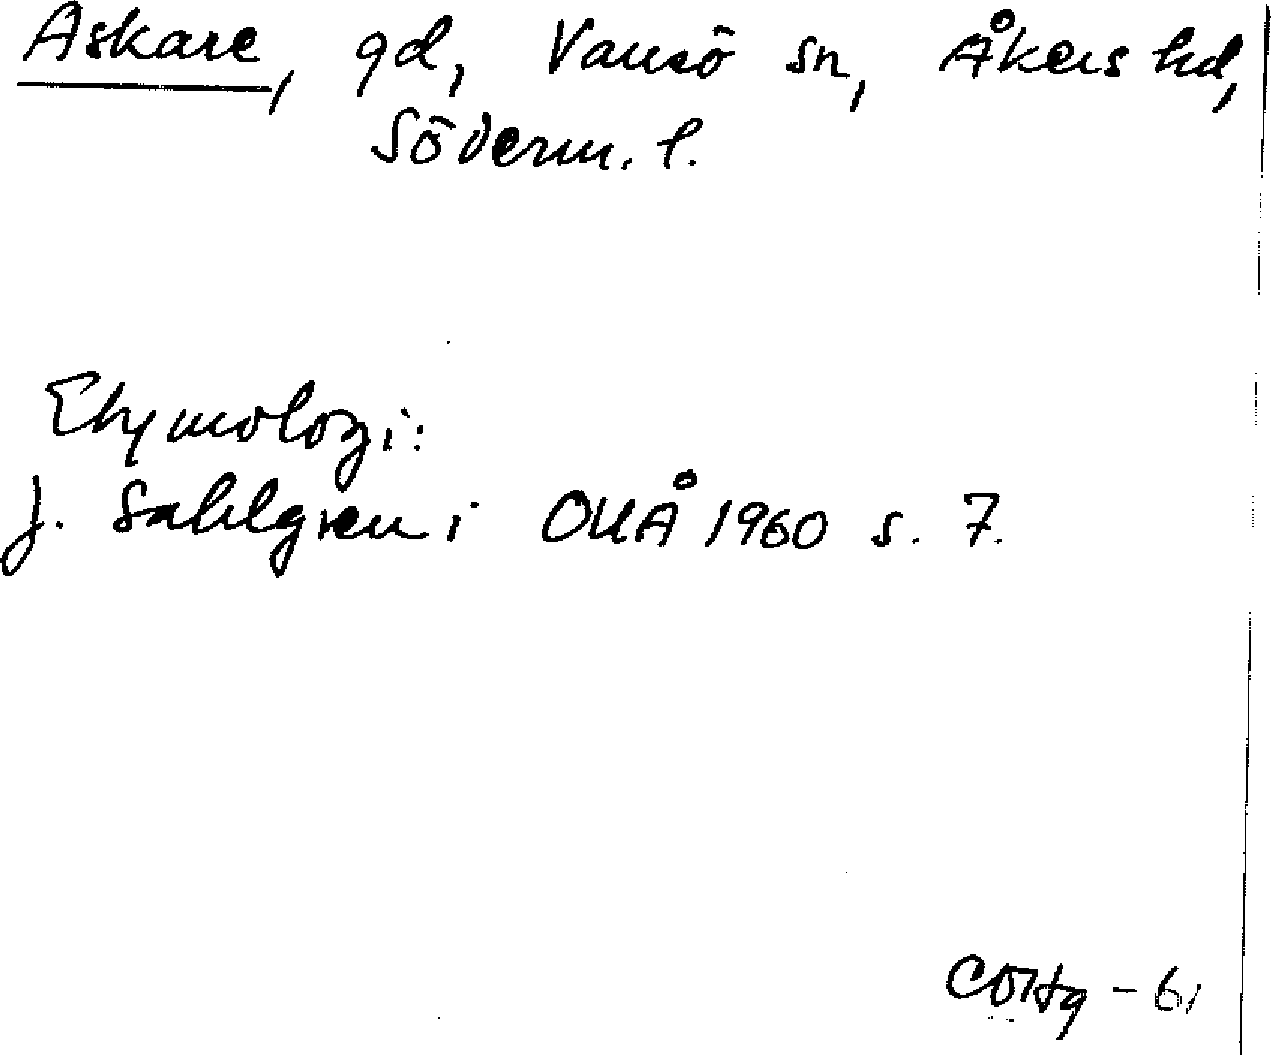 Askare, gd, Vansö sn, Åkers hd,
Söderm. l.
Etymologi:
J. Sahlgren i OUÅ 1960 s. 7.
-61